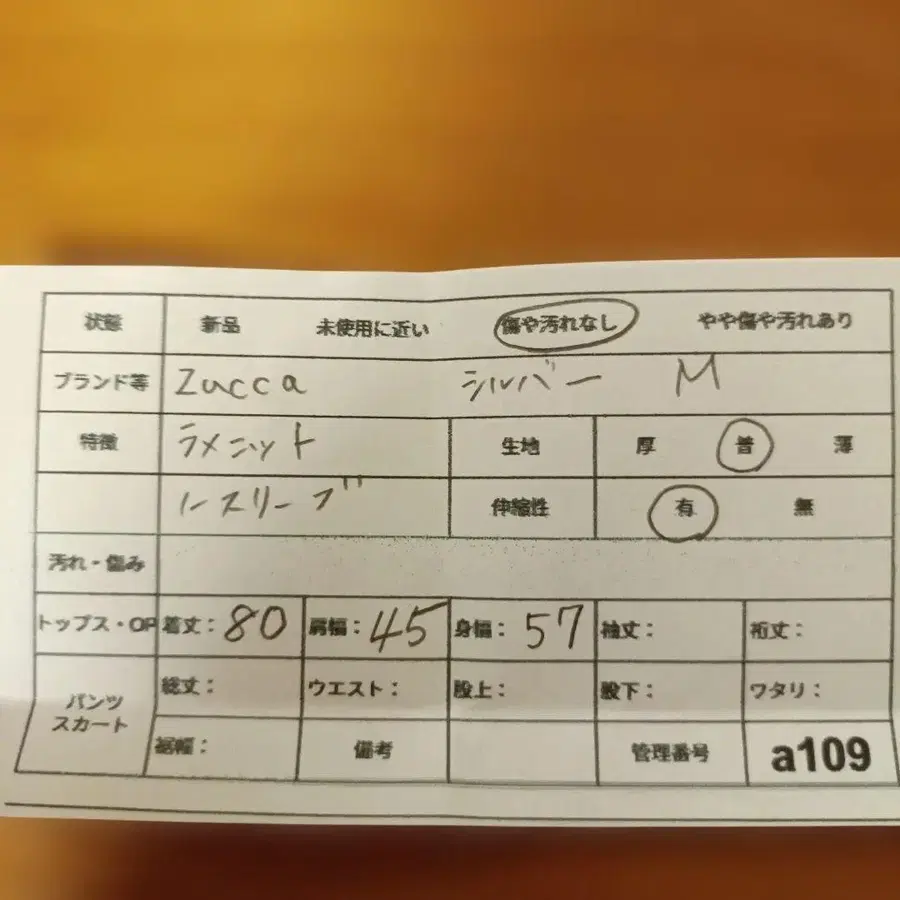 状態 新品 未使用に近い 傷や汚れなし やや傷や汚れあり
ブランド等 Zucca シルバー M
特徴 ラメニット 生地 厚 普 薄
ノースリーブ 伸縮性 有 無
汚れ・傷み
トップス・OP 着丈: 80 肩幅: 45 身幅: 57 袖丈: 裄丈:
パンツ 総丈: ウエスト: 股上: 股下: ワタリ:
スカート
裾幅: 備考 管理番号 a109